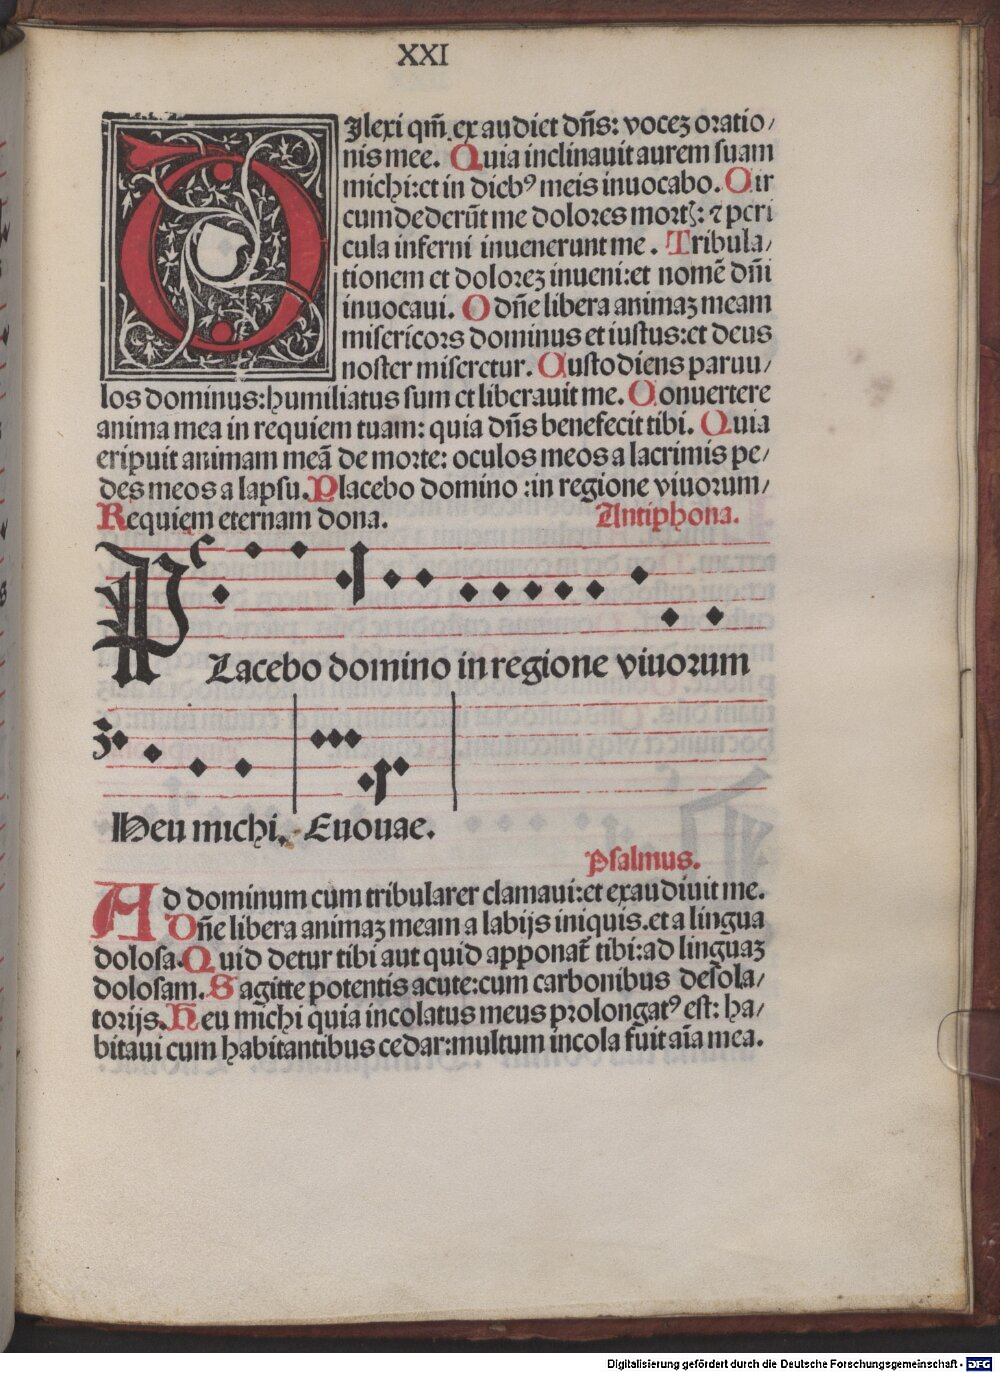 XXI
DIlexi qm̄ exaudiet dn̄s: voceꝫ oratio/
nis mee. Quia inclinauit aurem suam
michi:et in dieb⁹ meis inuocabo. Cir
cumdederūt me dolores mort͛: ⁊ peri
cula inferni inuenerunt me. Tribula/
tionem et doloreꝫ inueni:et nomē dn̄i
inuocaui. O dn̄e libera animaꝫ meam
misericors dominus et iustus:et deus
noster miseretur. Custodiens paruu/
los dominus:humiliatus sum et liberauit me. Conuertere
anima mea in requiem tuam: quia dn̄s benefecit tibi. Quia
eripuit animam meā de morte: oculos meos a lacrimis pe/
des meos a lapsu. Placebo domino :in regione viuorum/
Requiem eternam dona. Antiphona.
PLacebo domino in regione viuorum
Heu michi. Euouae.
Psalmus.
AD dominum cum tribularer clamaui:et exaudiuit me.
Dn̄e libera animaꝫ meam a labijs iniquis.et a lingua
dolosa. Quid detur tibi aut quid apponat̄ tibi:ad linguaꝫ
dolosam. Sagitte potentis acute:cum carbonibus desola/
torijs. Heu michi quia incolatus meus prolongat⁹ est: ha/
bitaui cum habitantibus cedar:multum incola fuit aīa mea.
Digitalisierung gefördert durch die Deutsche Forschungsgemeinschaft - DFG